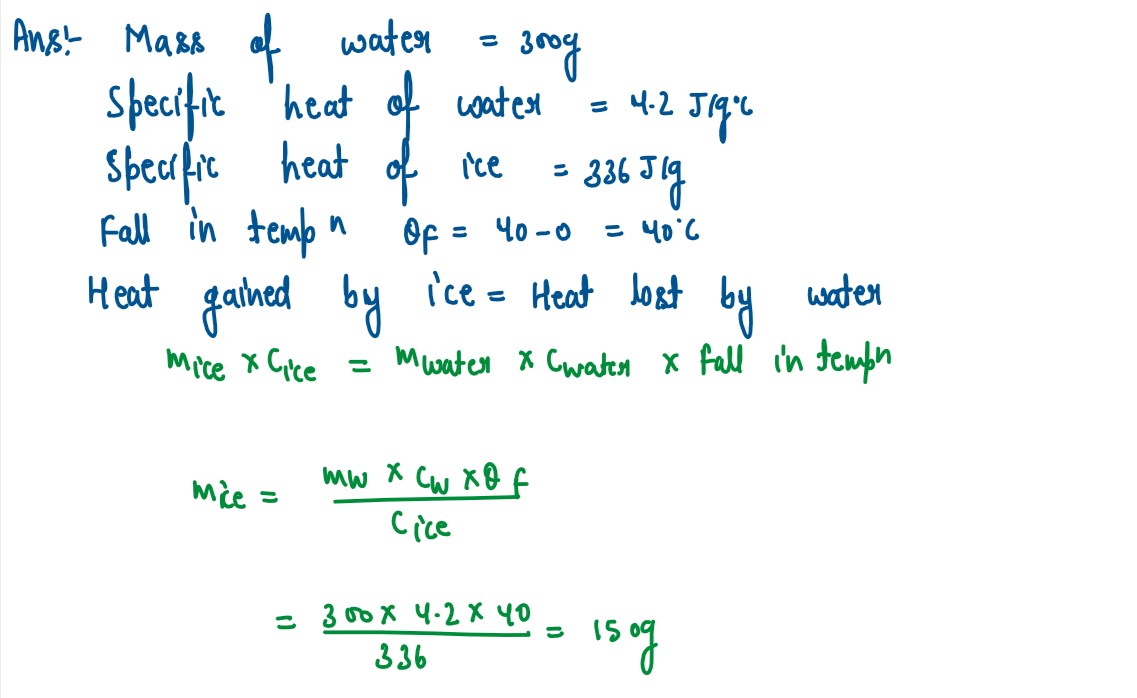 Ans:- Mass of water = 300g
Specific heat of water = 4.2 J/g°C
Specific heat of ice = 336 J/g
Fall in tempn θf = 40-0 = 40°C
Heat gained by ice = Heat lost by water
mice x Cice = mwater x Cwater x fall in tempn
mice = mw x Cw x θf
Cice
= 300 x 4.2 x 40 = 150g
336